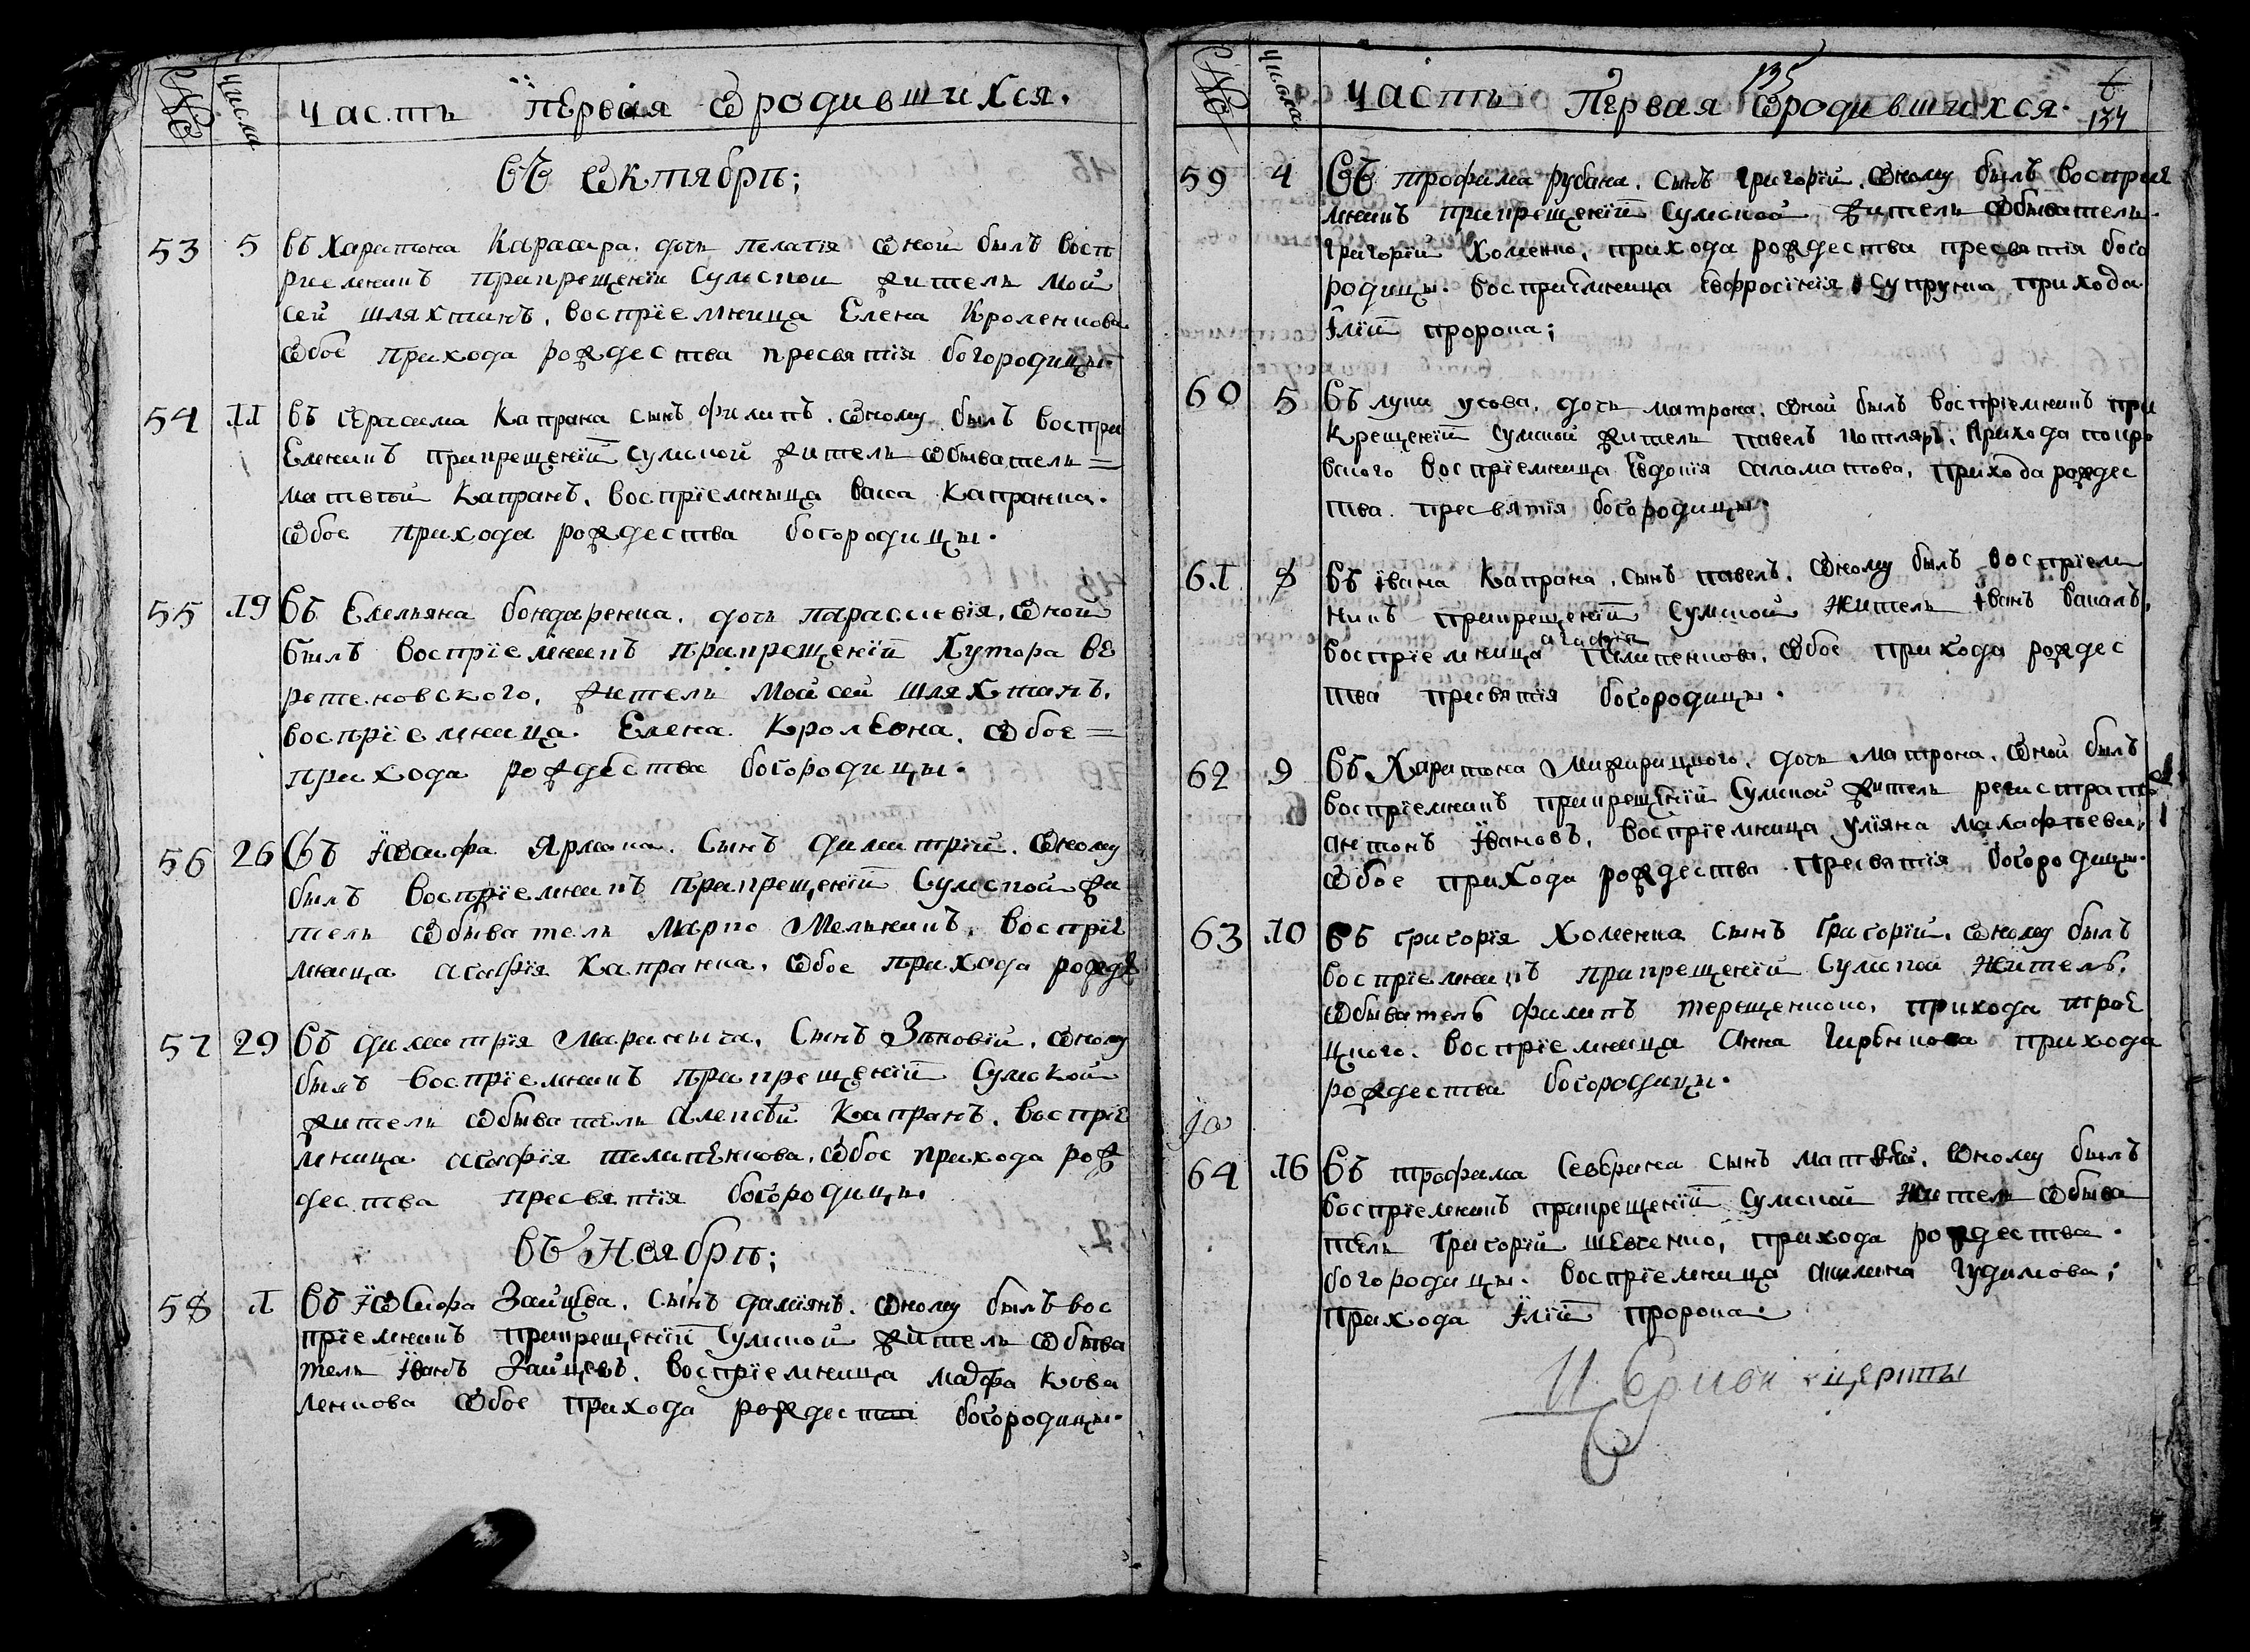 № числа часть первая ѡродившихся.
въ ѡктябрѣ;
53 5 въ Харитона Карасира. дочь пелагія ѡной былъ восп
риемникъ прикрещеніи Сумской житель Мой
сей шляхтинъ. воспріемница Елена Кроленкова
ѡбое прихода рождества пресвятія богородицы.
54 11 въ Герасима Капрана сынъ филипъ. ѡному былъ воспри
Емникъ прикрещеніи Сумской житель ѡбыватель =
матвей Капранъ. воспріемныца васа Капранка.
ѡбое прихода рождества богородицы.
55 19 въ Емельяна бондаренка. дочь параскевія. ѡной
былъ воспріемникъ прикрещеніи Хутора ве
ретеновского. житель Мойсей шляхтинъ.
воспріемница Елена Кролевна. ѡбое =
прихода рождества богородицы.
56 26 въ Іѡсифа Ярмака. Сынъ димитрій. ѡному
былъ воспріемникъ прикрещеніи Сумской жи
тель ѡбыватель Марко Мельникъ. воспріе
мница агафія Капранка. ѡбое прихода рожде
57 29 въ димитрія Маракыча. Сынъ Зѣновій. ѡному
былъ воспріемникъ прикрещеніи Сумской
житель ѡбыватель Алексѣй Капранъ. воспріе
мница агафія пилипЕнкова. ѡбое прихода рож
дества пресвятія богородицы
въ Ноябрѣ;
58 1 въ Іѡсифа Зайцева. Сынъ даміянъ. ѡному былъ вос
пріемникъ прикрещеніи Сумской житель ѡбыва
тель Іванъ Зайцевъ. воспріемница мадфа Кова
ленкова ѡбое прихода рождества богородицы.
135
134
№ числа часть Первая ѡродившихся.
59 4 въ трофима рубана. Сынъ григорій. ѡному былъ восприе
мникъ прикрещеніи Сумской житель ѡбыватель
григорій Хоменко, прихода рождества пресвятія бого
родицы. воспріемница Евфросінія Супрунка прихода
Іліи пророка;
60 5 въ луки усова. дочь матрона. ѡной былъ воспріемникъ при
Крещеніи Сумской житель павелъ Котляръ. прихода покро
вского воспріемница Евдокія саламатова, прихода рождес
тва пресвятія богородицы.
61 8 въ івана Капрана. сынъ павелъ. ѡному былъ воспріем
никъ прикрещеніи Сумской житель іванъ
воспріемница агафія пилипенкова. ѡбое прихода рождес
тва пресвятія богородицы.
62 9 въ Харитона Мижирицкого. дочь матрона. ѡной былъ
воспріемникъ прикрещеніи Сумской житель
антонъ Івановъ. воспріемница уліяна малафѣева.
ѡбое прихода рождества пресвятія богородицы.
63 10 въ григорія Хоменка сынъ Григорій. ѡному былъ
воспріемникъ прикрещеніи Сумской житель.
ѡбыватель филипъ терещенково. прихода трое
цкого. воспріемница Анна прихода
рождества богородицы.
64 16 въ трофима Севєрина сынъ матвѣй. ѡному былъ
воспріемникъ прикрещеніи Сумской житель ѡбыва
тель Григорій шевченко, прихода рождества
богородицы. воспріемница акилина гудимова;
прихода Іліи пророка.